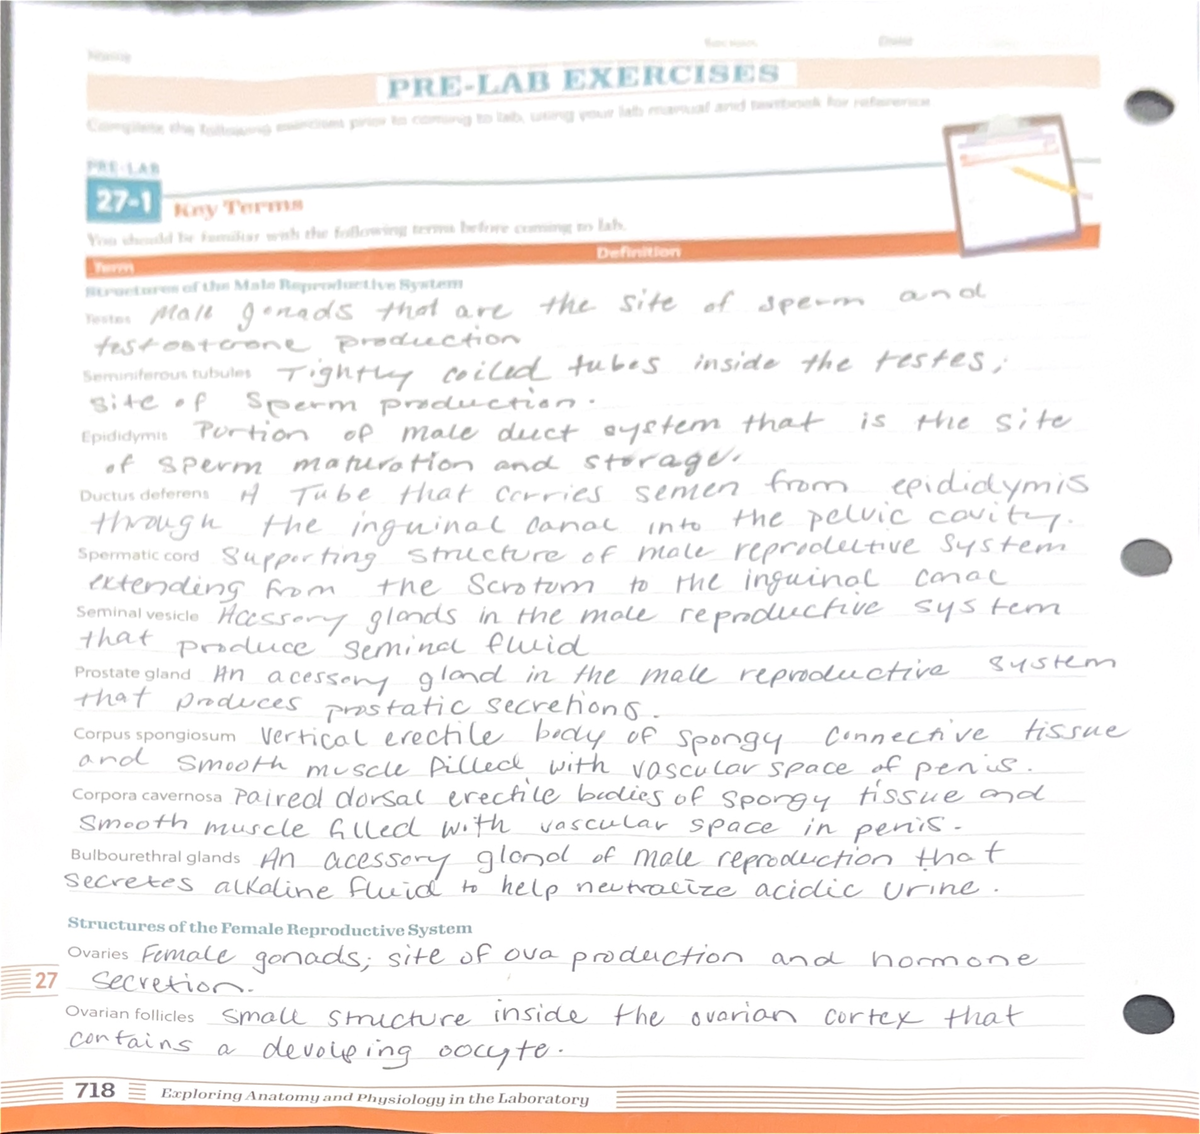 Name Section Date
PRE-LAB EXERCISES
Complete the following exercises prior to coming to lab, using your lab manual and textbook for reference
PRE-LAB
27-1 Key Terms
You should be familiar with the following terms before coming to lab.
Term Definition
Structures of the Male Reproductive System
Testes Male gonads that are the site of sperm and
testosterone production
Seminiferous tubules Tightly coiled tubes inside the testes;
site of sperm production.
Epididymis Portion of male duct system that is the site
of sperm maturation and storage.
Ductus deferens A Tube that carries semen from epididymis
through the inguinal canal into the pelvic cavity.
Spermatic cord Supporting structure of male reproductive system
extending from the scrotum to the inguinal canal
Seminal vesicle Acessory glands in the male reproductive system
that produce seminal fluid
Prostate gland An acessory gland in the male reproductive system
that produces prostatic secretions.
Corpus spongiosum Vertical erectile body of spongy connective tissue
and smooth muscle filled with vascular space of penis.
Corpora cavernosa Paired dorsal erectile bodies of spongy tissue and
smooth muscle filled with vascular space in penis.
Bulbourethral glands An acessory gland of male reproduction that
secretes alkaline fluid to help neutralize acidic urine.
Structures of the Female Reproductive System
Ovaries Female gonads; site of ova production and hormone
27 secretion.
Ovarian follicles small structure inside the ovarian cortex that
contains a devolping oocyte.
718 Exploring Anatomy and Physiology in the Laboratory